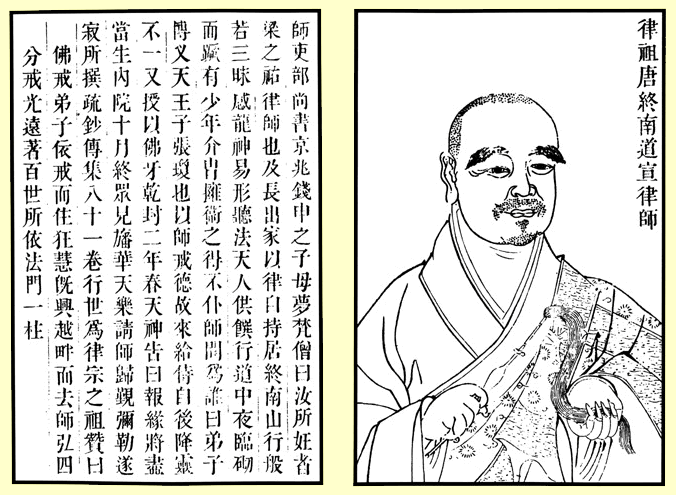 律祖唐終南道宣律師
師吏部尚書京兆錢申之子母夢梵僧曰汝所妊者
梁之祐律師也及長出家以律自持居終南山行般
若三昧感龍神易形聽法天人供饌行道中夜臨砌
而蹶有少年介冑擁衞之得不仆師問爲誰曰弟子
博叉天王子張瓊也以師戒德故來給侍自後降靈
不一又授以佛牙乾封二年春天神告曰報緣將盡
當生內院十月終眾見旛華天樂請師歸覲彌勒遂
寂所撰疏鈔傳集八十一卷行世爲律宗之祖贊曰
佛戒弟子依戒而住狂慧旣興越畔而去師弘四
分戒光遠著百世所依法門一柱